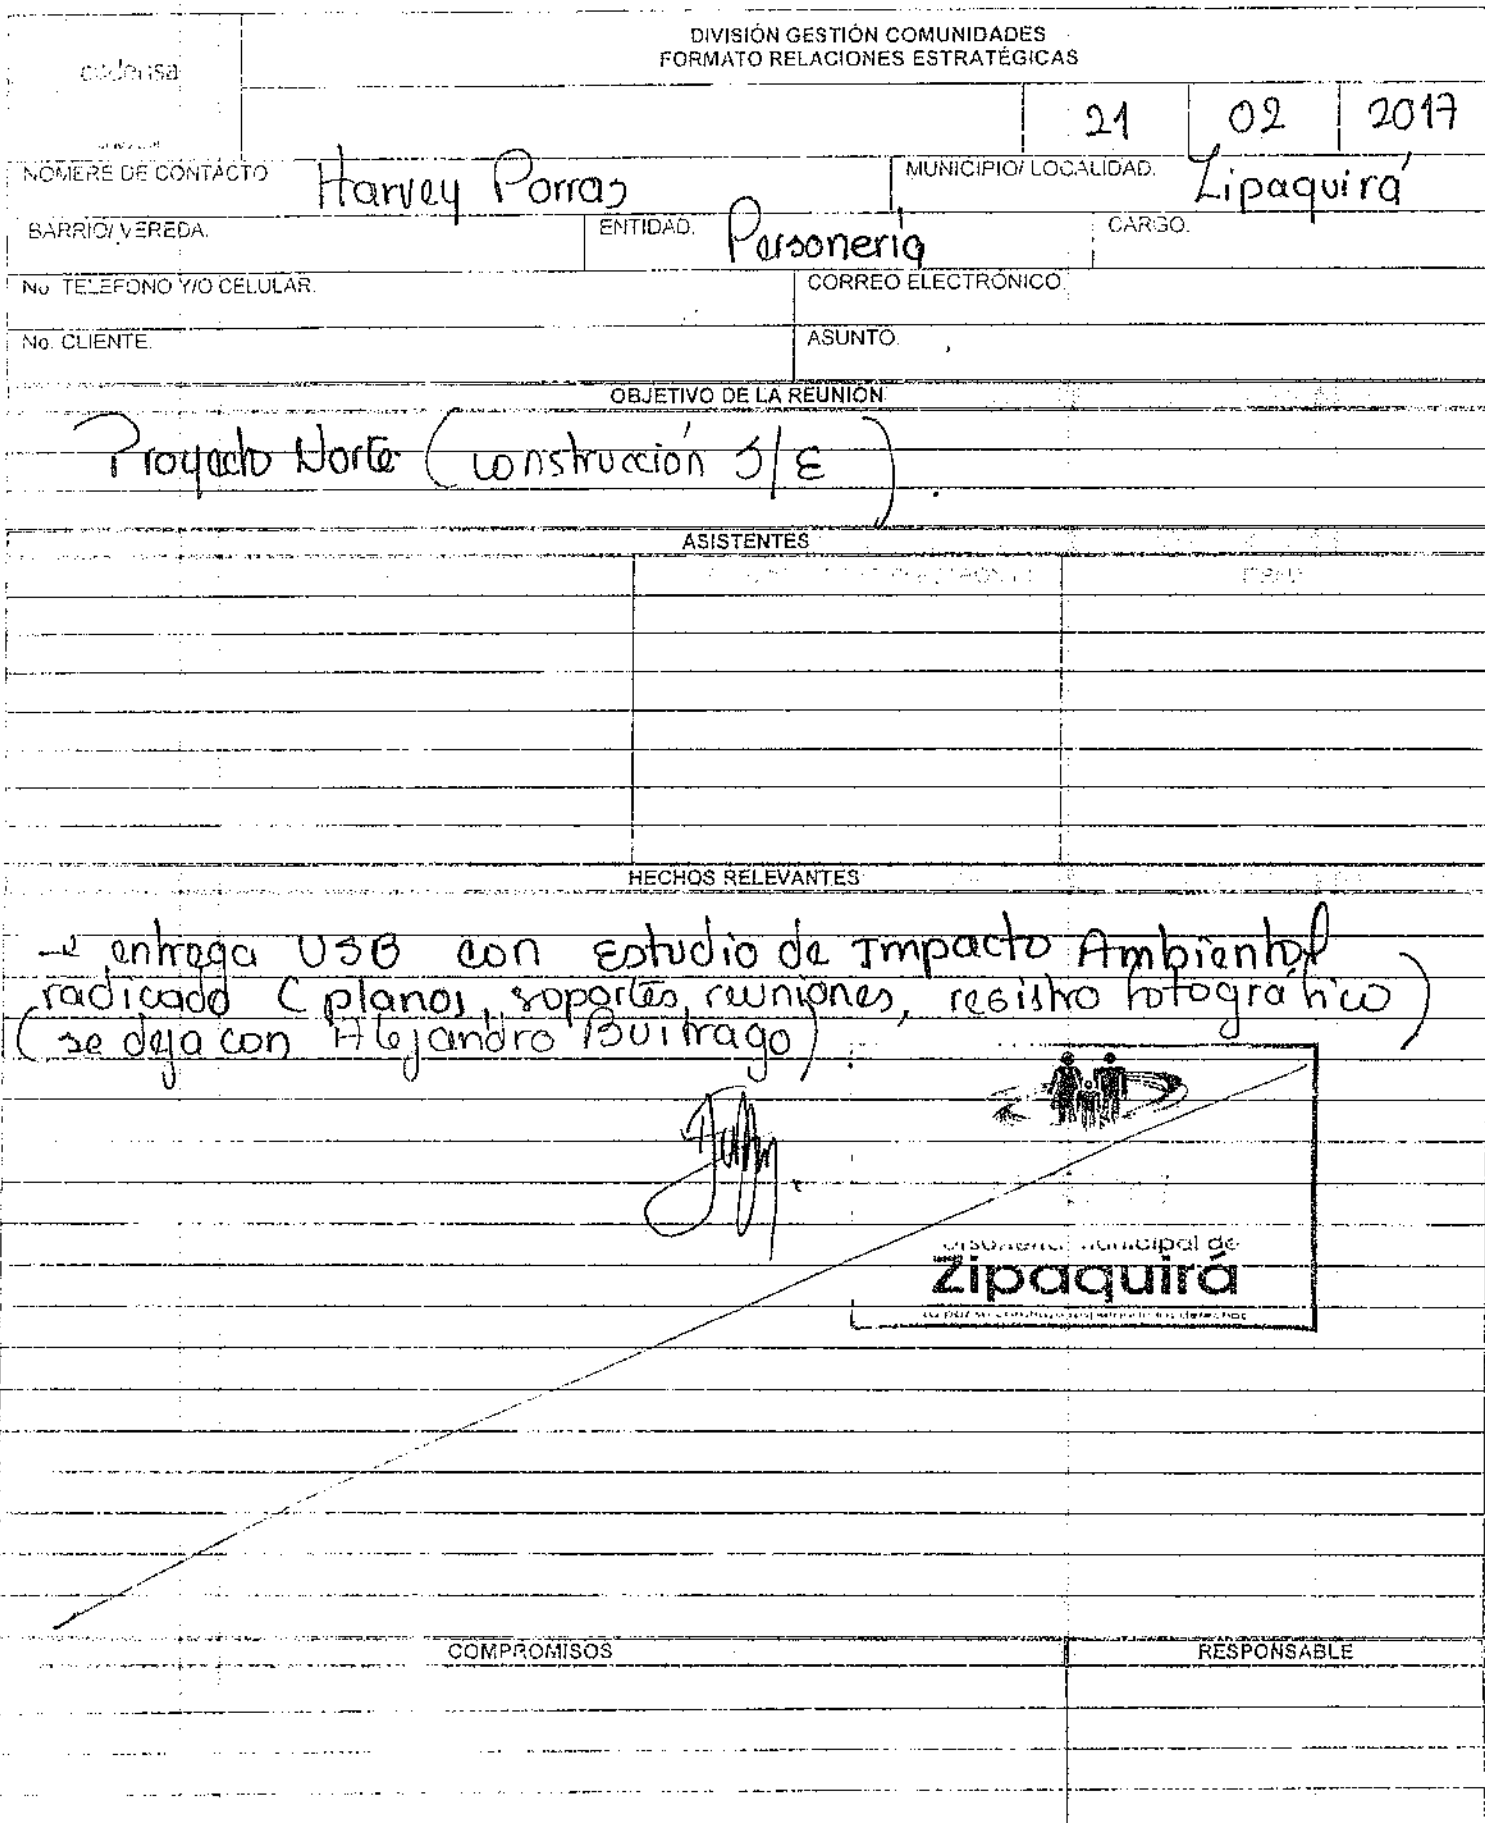 DIVISIÓN GESTIÓN COMUNIDADES
FORMATO RELACIONES ESTRATÉGICAS
codensa
21 02 2017
NOMBRE DE CONTACTO Harvey Porras MUNICIPIO/ LOCALIDAD. Zipaquirá
BARRIO/ VEREDA. ENTIDAD. Personería CARGO.
No TELEFONO Y/O CELULAR. CORREO ELECTRÓNICO.
No. CLIENTE. ASUNTO.
OBJETIVO DE LA REUNIÓN
Proyecto Norte (construcción S/E).
ASISTENTES
HECHOS RELEVANTES
→ entrega USB con Estudio de Impacto Ambiental
radicado (planos, soportes, reuniones, registro fotográfico)
(se deja con Alejandro Buitrago).
Municipal de
Zipaquirá
COMPROMISOS RESPONSABLE